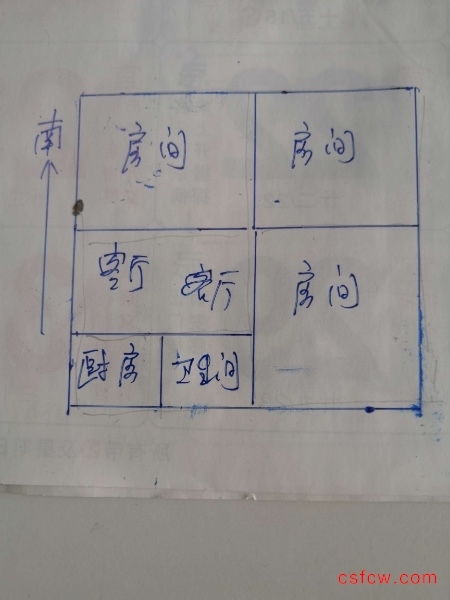 南
房间 房间
客厅 客厅 房间
厨房 卫生间
csfcw.com